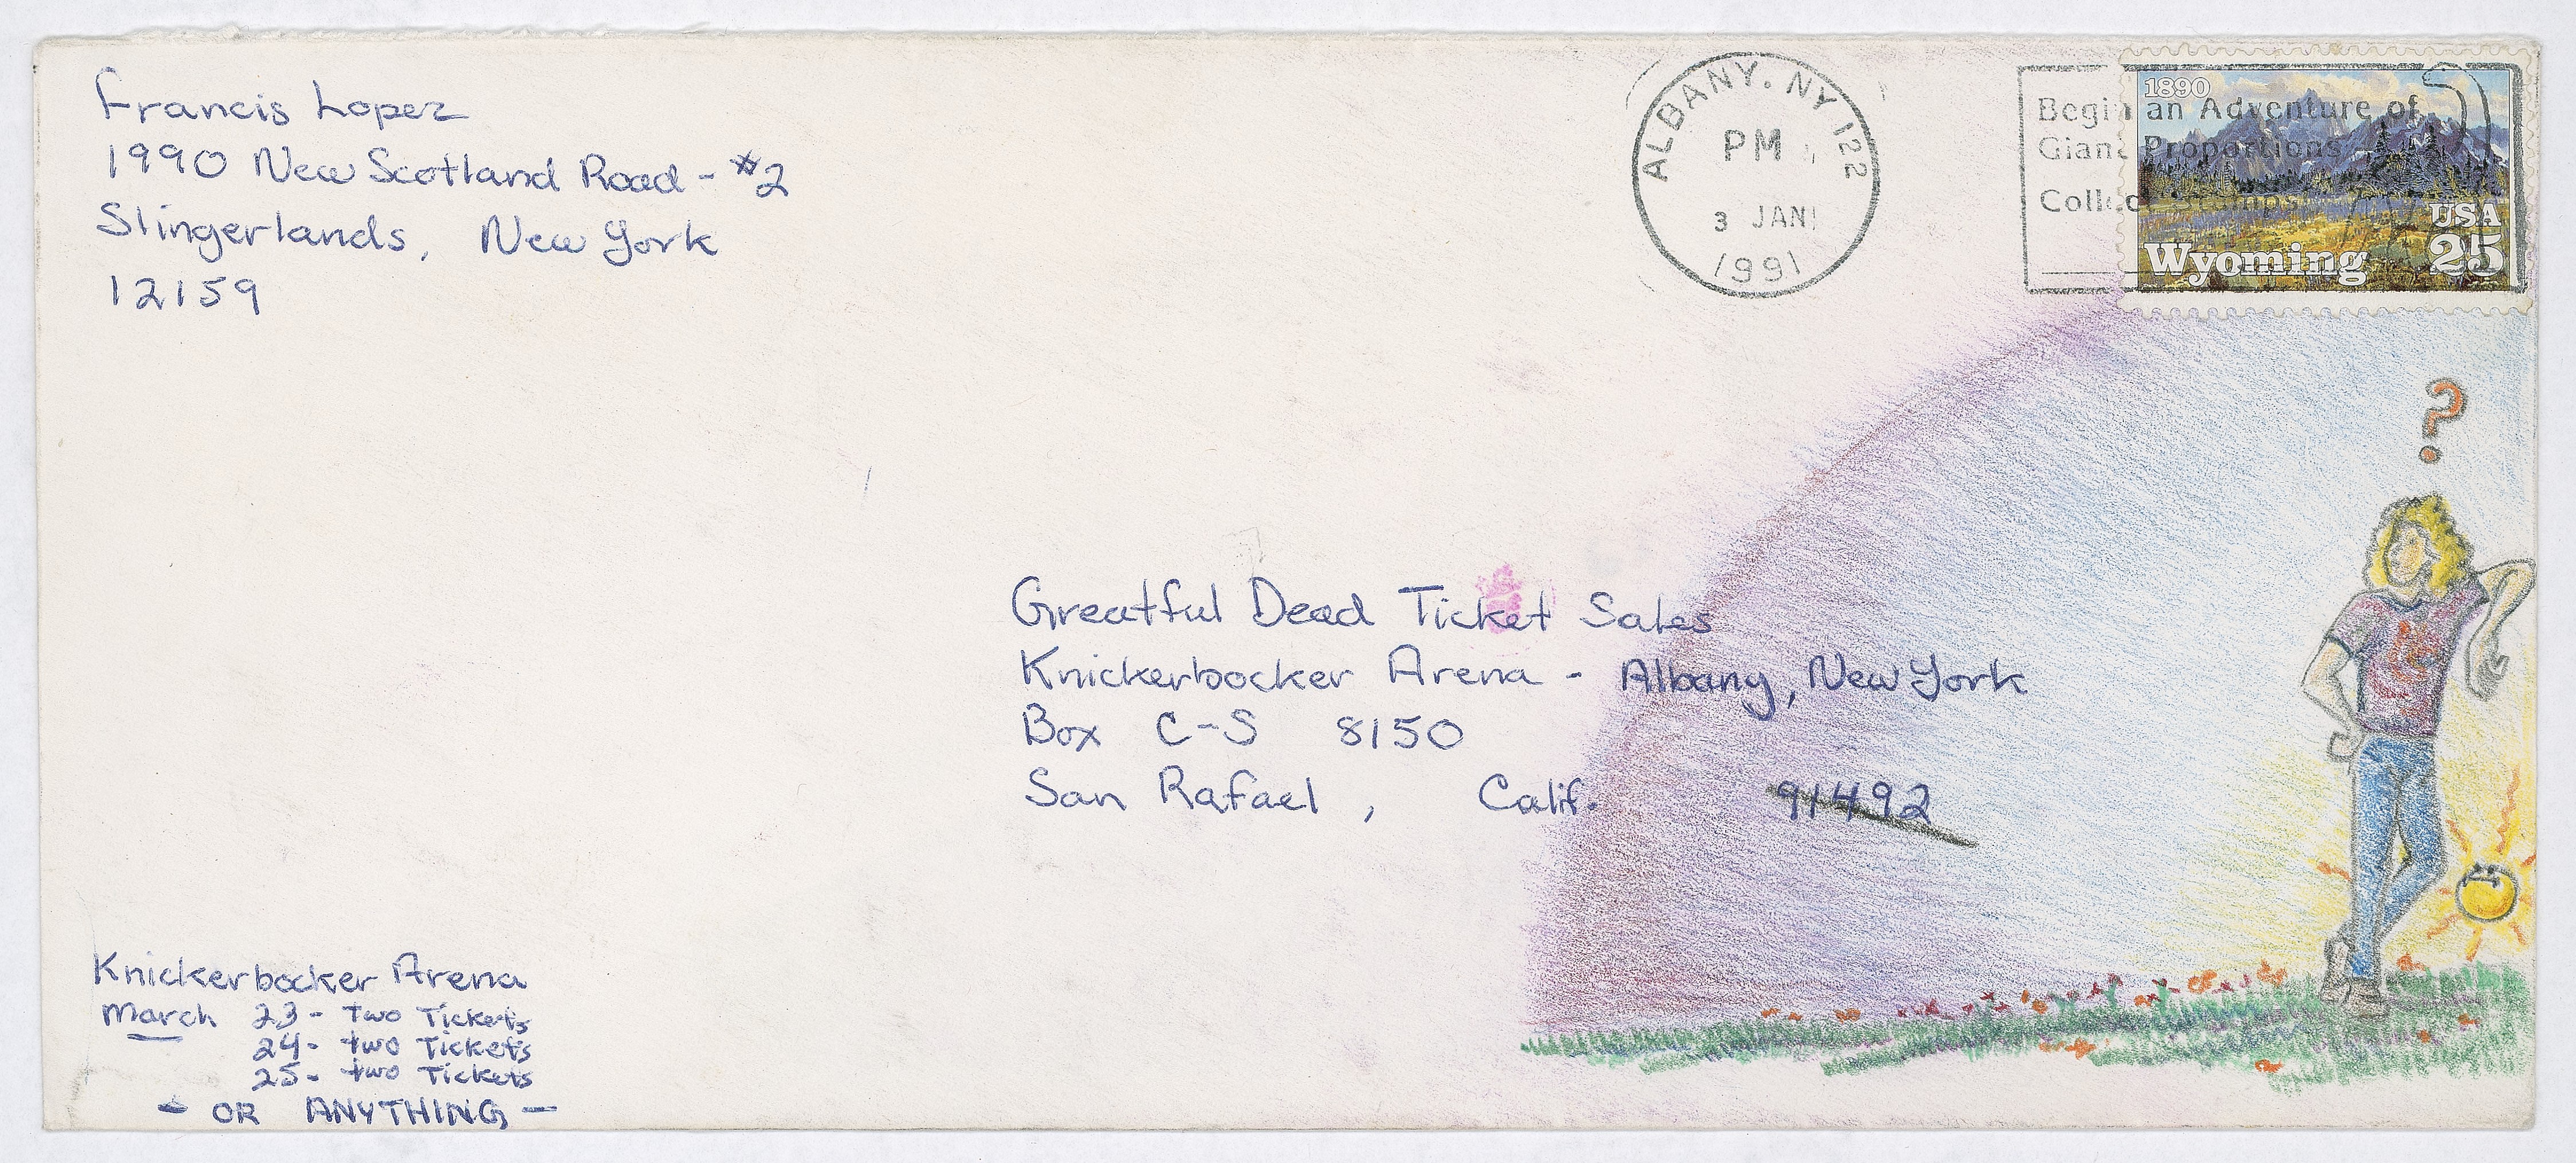 Francis Lopez
1990 New Scotland Road - #2
Slingerlands, New York
12159
ALBANY. NY 122
PM
3 JAN
1991
Begin an Adventure of
Giant Proportions
Collect Stamps
1890
USA
25
Wyoming
?
Greatful Dead Ticket Sales
Knickerbocker Arena - Albany, New York
Box C-S 8150
San Rafael, Calif. 91492
Knickerbocker Arena
March 23 - two Tickets
24 - two Tickets
25 - two Tickets
- OR ANYTHING -